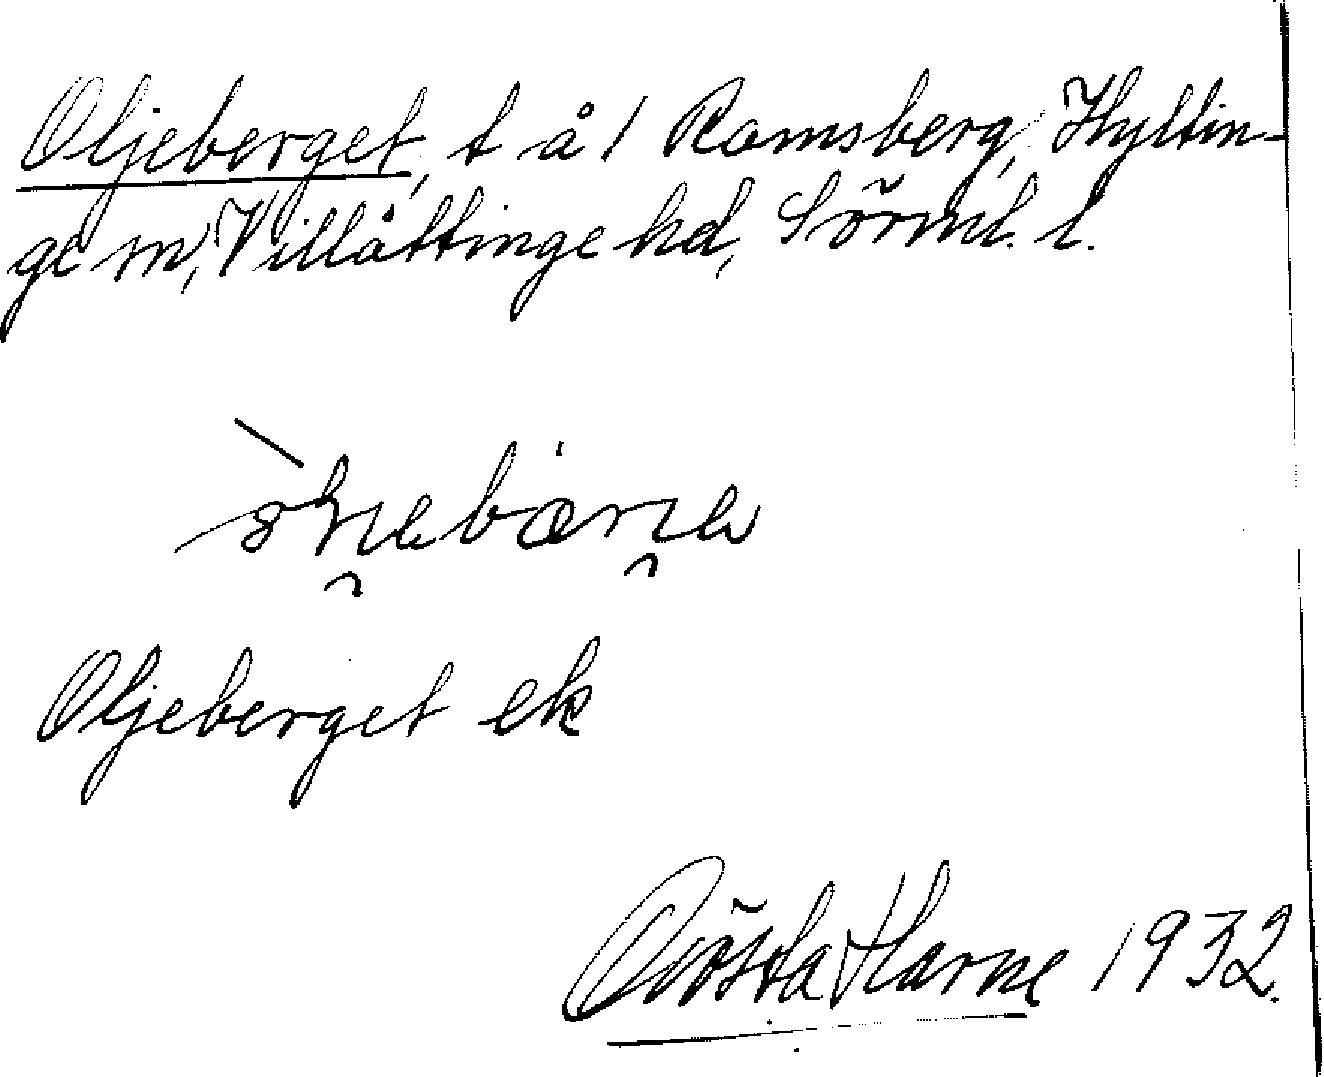 Oljeberget, t å 1 Ramsberg, Hyltin-
ge sn, Villåttinge hd, Sörml. l.
Oljeberget ek
Gösta Harne 1932.